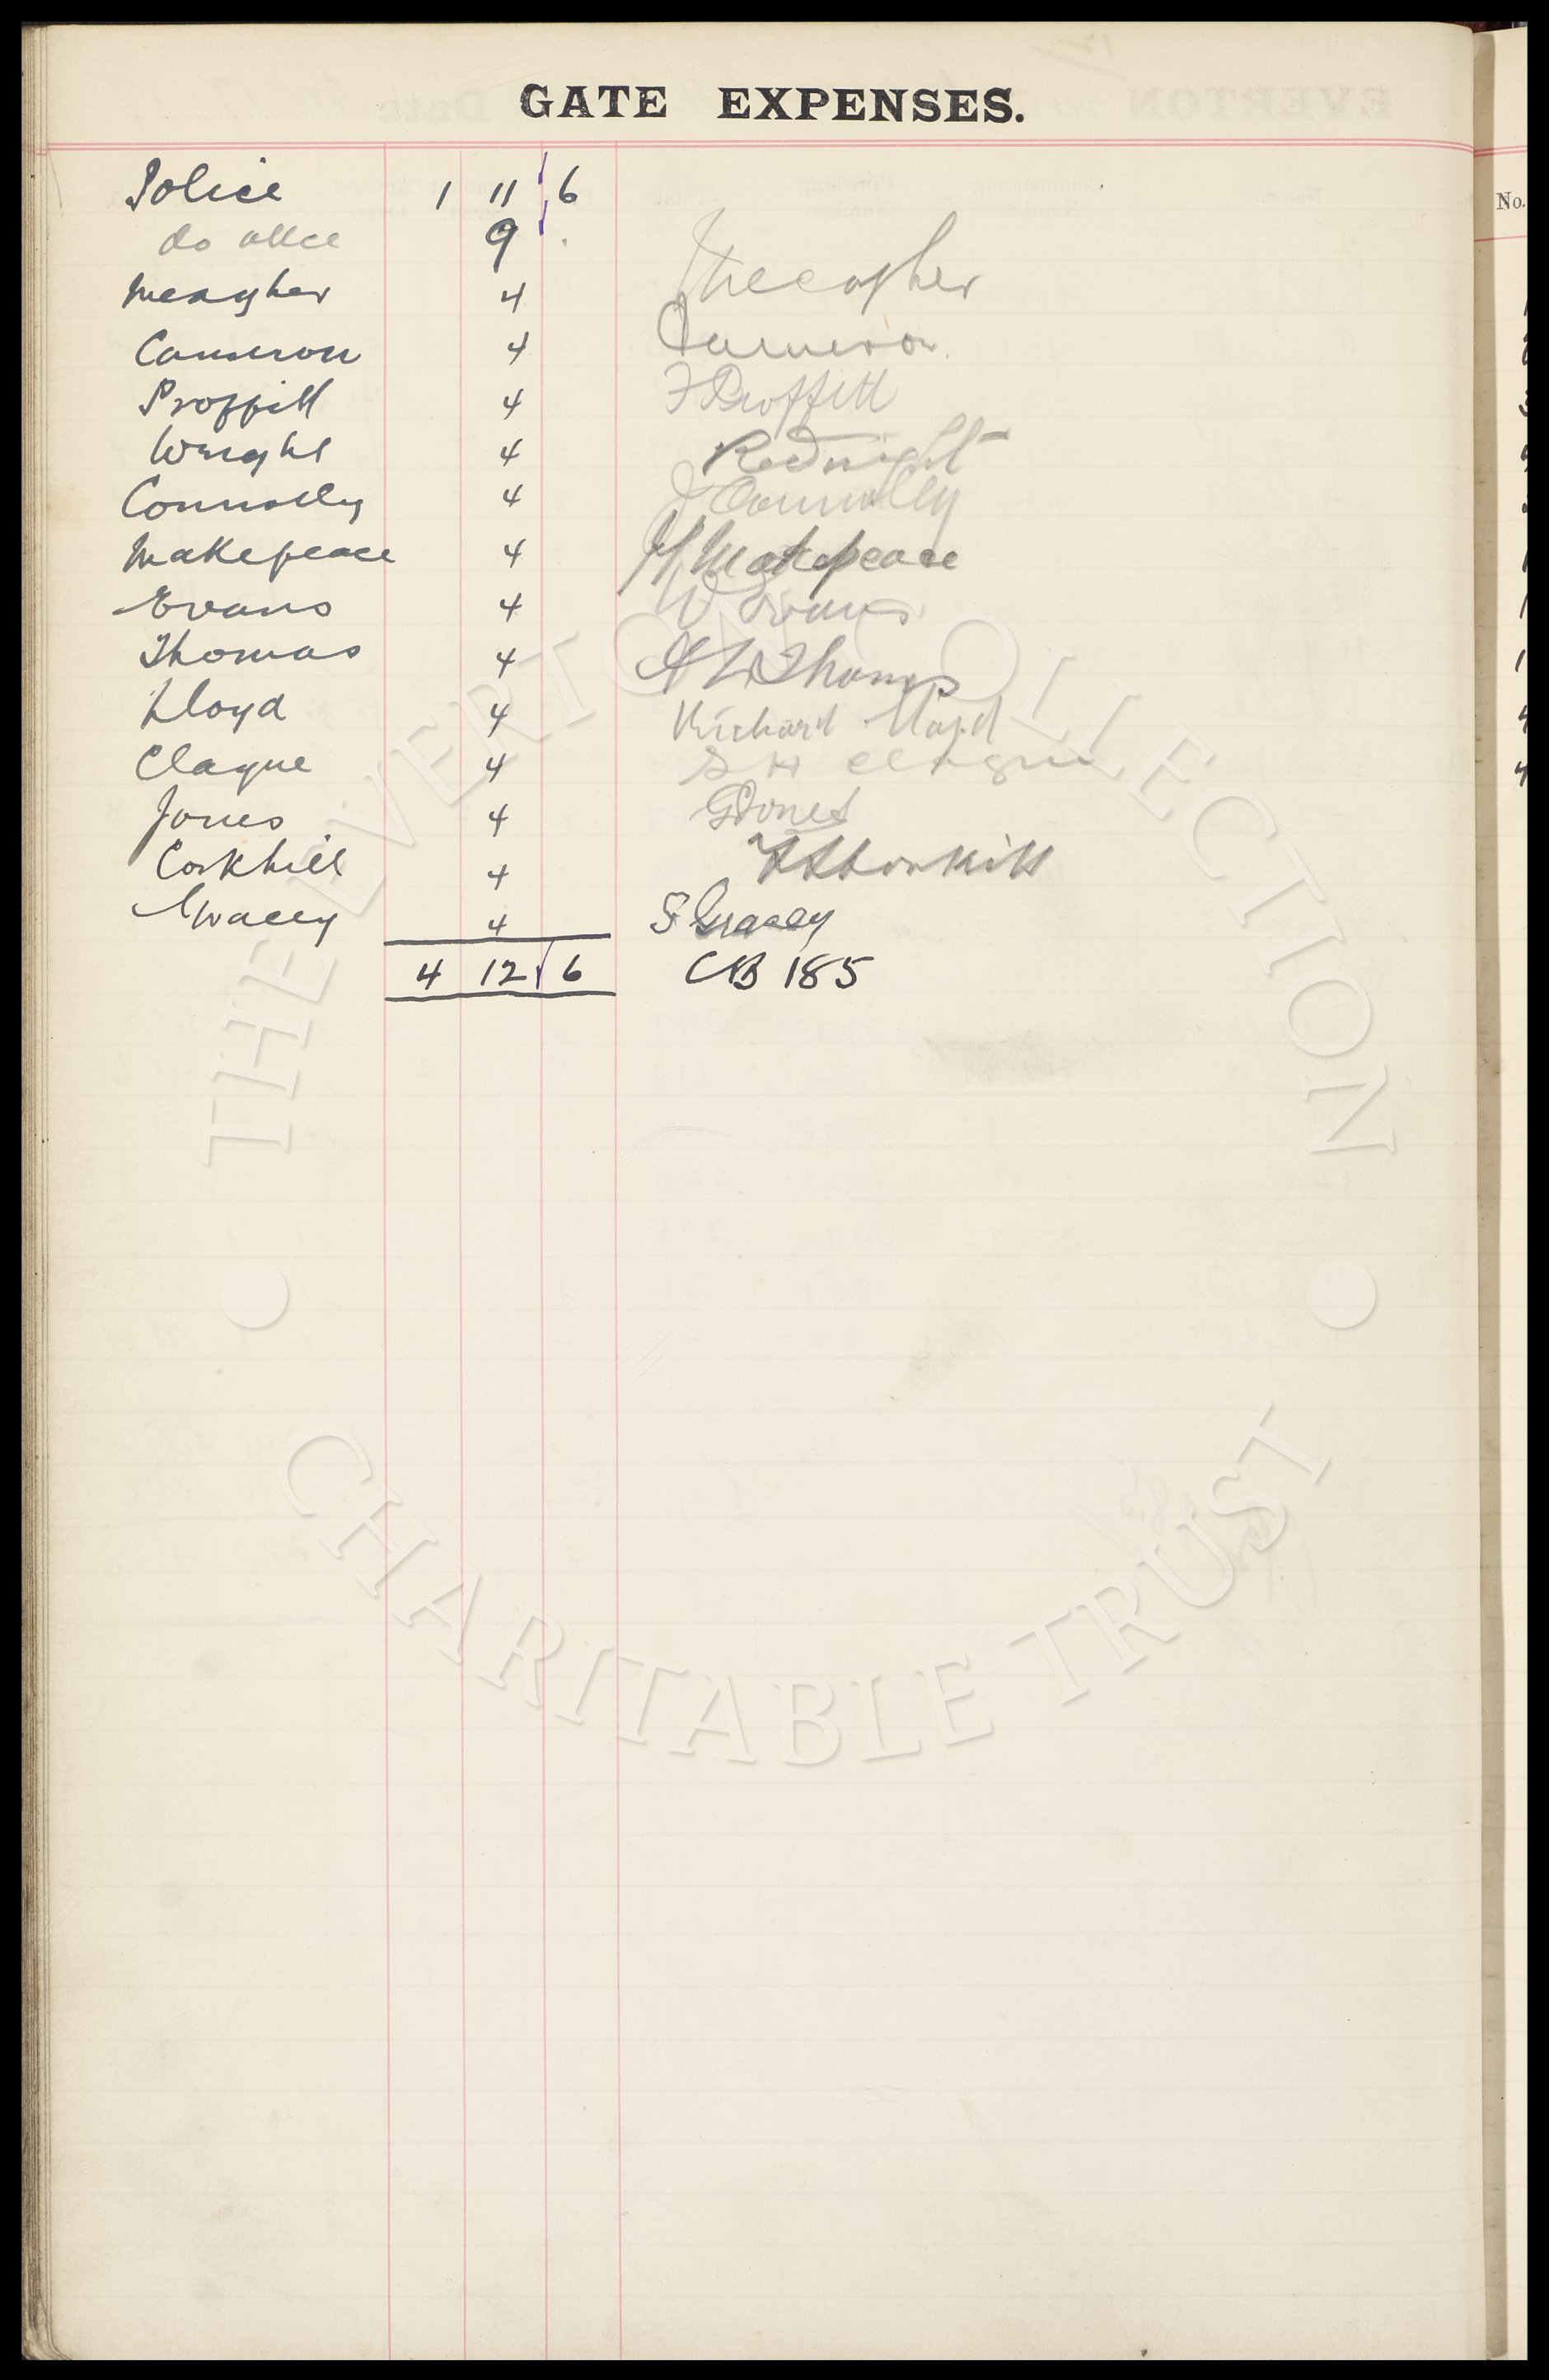 GATE EXPENSES.
Police 1 11 6
do allce 9 .
Meagher 4 Meagher
Cameron 4 Cameron
Proffitt 4 F Proffitt
Wright 4
Connolly 4 J Connolly
Makepeace 4 H Makepeace
Evans 4 W Evans
Thomas 4 A W Thomas
Lloyd 4 Richard Lloyd
Clague 4 S H Clague
Jones 4 G Jones
Corkhill 4 Corkhill
Gracey 4 S Gracey
4 12 6 CB 185
No.
THE EVERTON COLLECTION
CHARITABLE TRUST